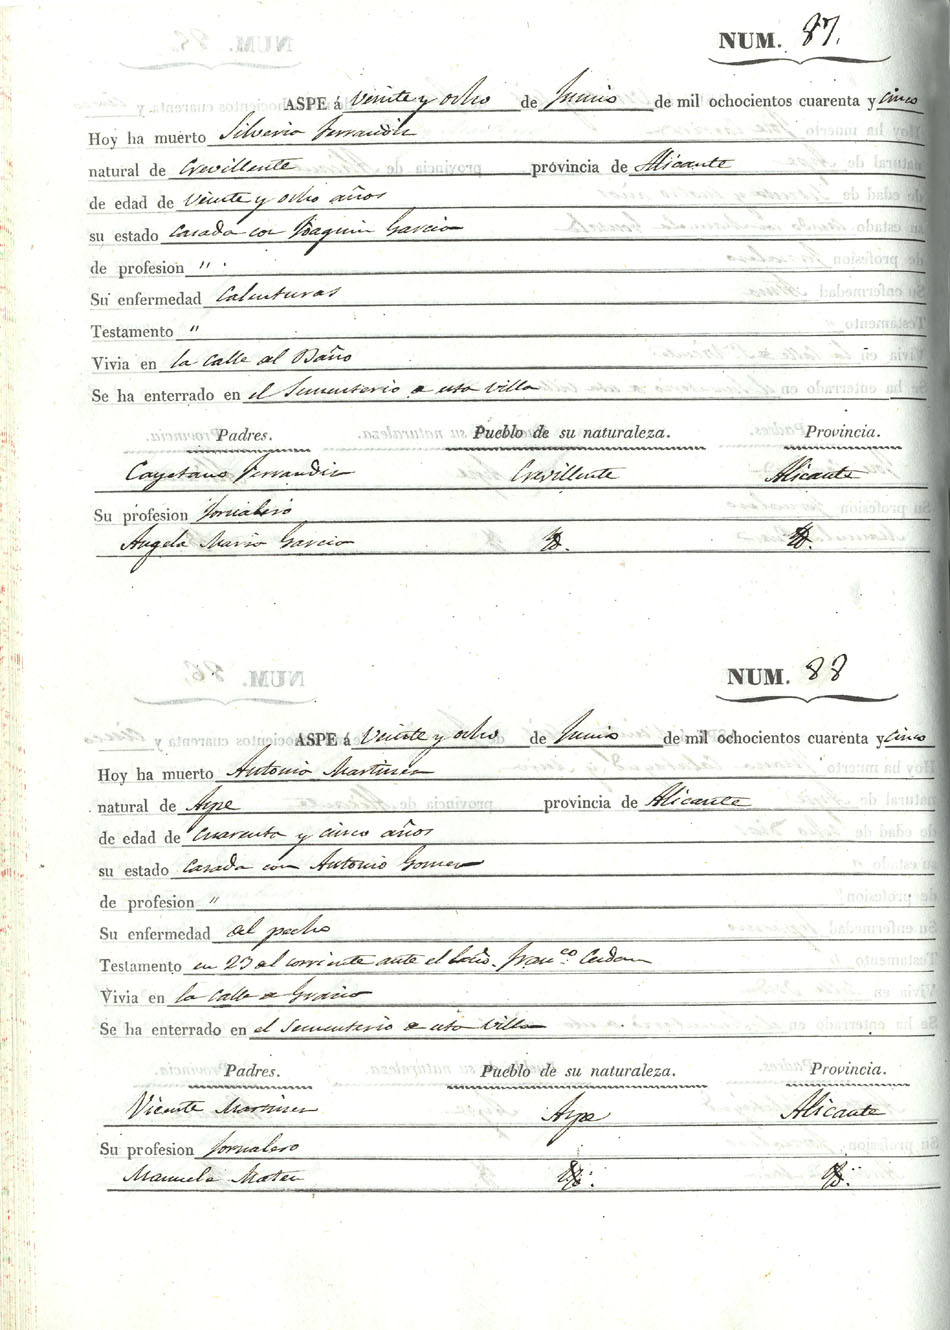 NUM. 87.
ASPE á veinte y ocho de Junio de mil ochocientos cuarenta y cinco
Hoy ha muerto Silveria Ferrandiz
natural de Crevillente provincia de Alicante
de edad de veinte y ocho años
su estado casada con Joaquin Garcia
de profesion "
Su enfermedad Calenturas
Testamento "
Vivia en la calle del Baño
Se ha enterrado en el Sementerio de esta villa
Padres. Pueblo de su naturaleza. Provincia.
Cayetano Ferrandiz Crevillente Alicante
Su profesion Jornalero
Angela Maria Garcia
NUM. 88
ASPE á veinte y ocho de Junio de mil ochocientos cuarenta y cinco
Hoy ha muerto Antonia Martinez
natural de Aspe provincia de Alicante
de edad de cuarenta y cinco años
su estado casada con Antonio Gomez
de profesion "
Su enfermedad del pecho
Testamento en 23 del corriente ante el Franco.
Vivia en la calle de Gracia
Se ha enterrado en el Sementerio de esta villa
Padres. Pueblo de su naturaleza. Provincia.
Vicente Martinez Aspe Alicante
Su profesion Jornalero
Manuela Mateu